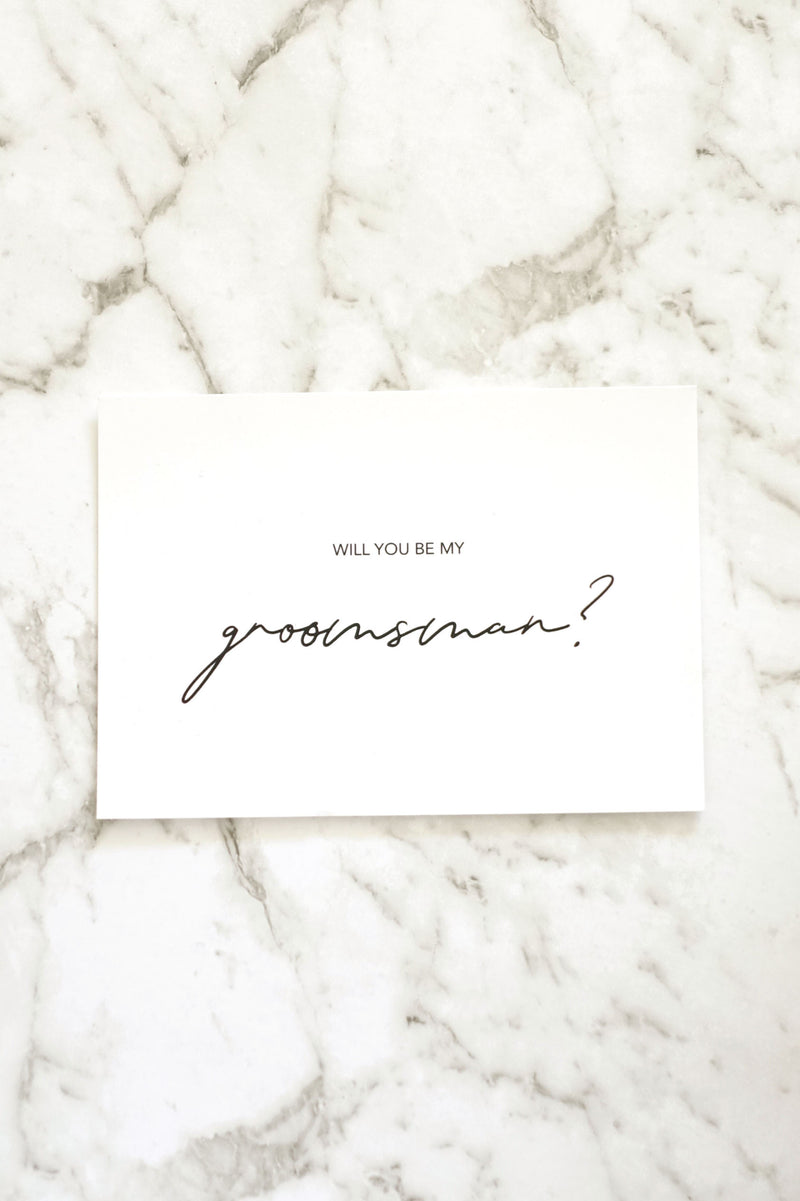 WILL YOU BE MY
groomsman?